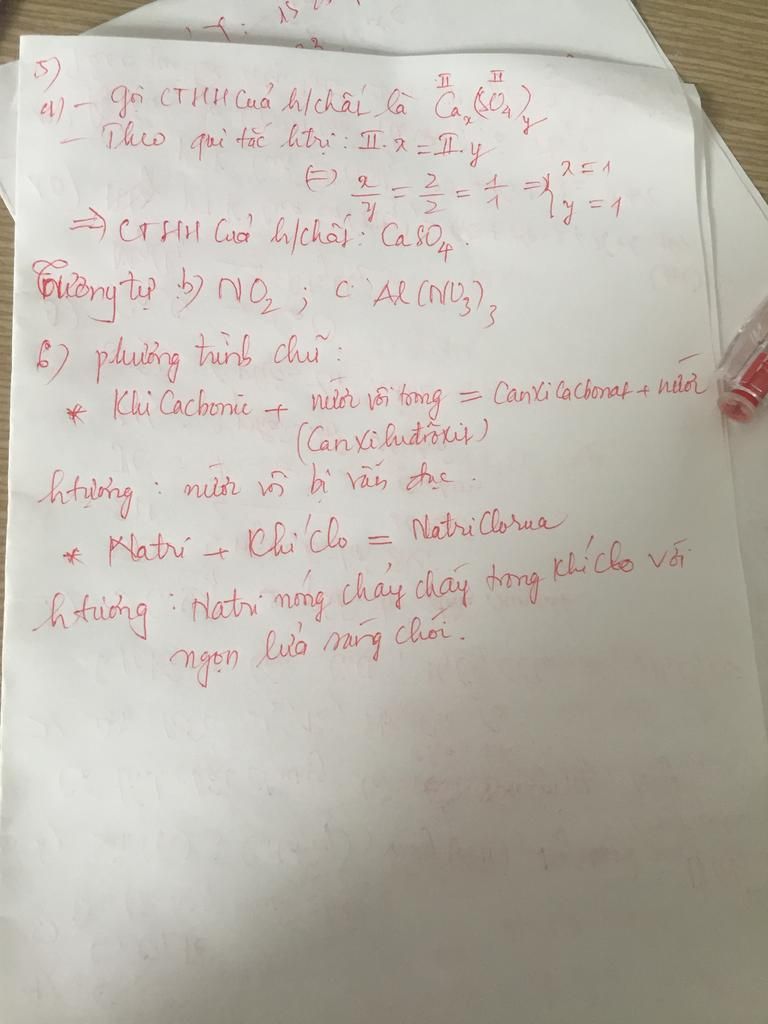 5)
a) - Gọi CTHH của h/chất là Caₓ(SO₄)ᵧ
II II
- Theo qui tắc htrị: II.x = II.y
(=) x/y = 2/2 = 1/1 => { x = 1
y = 1
=> CTHH của h/chất: CaSO₄.
Tương tự b) NO₂ ; c Al(NO₃)₃
6) phương trình chữ:
* Khí Cacbonic + nước vôi trong = Canxi Cacbonat + nước
(Canxi hiđrôxit)
htượng: nước vôi bị vẩn đục.
* Natri + Khí Clo = Natri Clorua
htượng: Natri nóng chảy cháy trong Khí Clo với
ngọn lửa sáng chói.